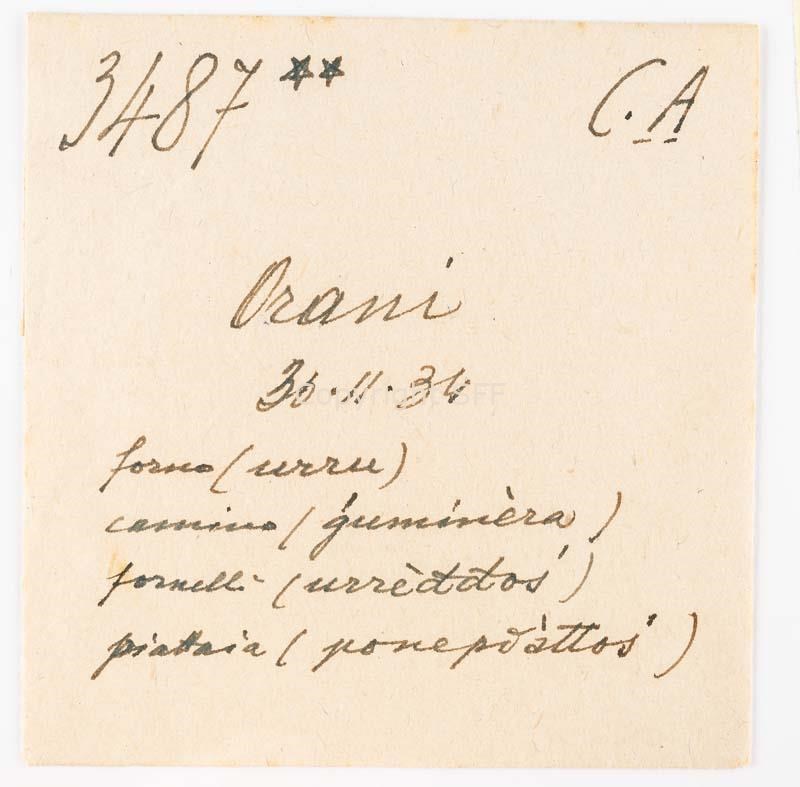 3487 ** C. A
Orani
30.11.34
forno (urru)
camino (ǵuminèra)
fornelli (urrèđđoś)
piattaia (ponepĭ̀áttoś)